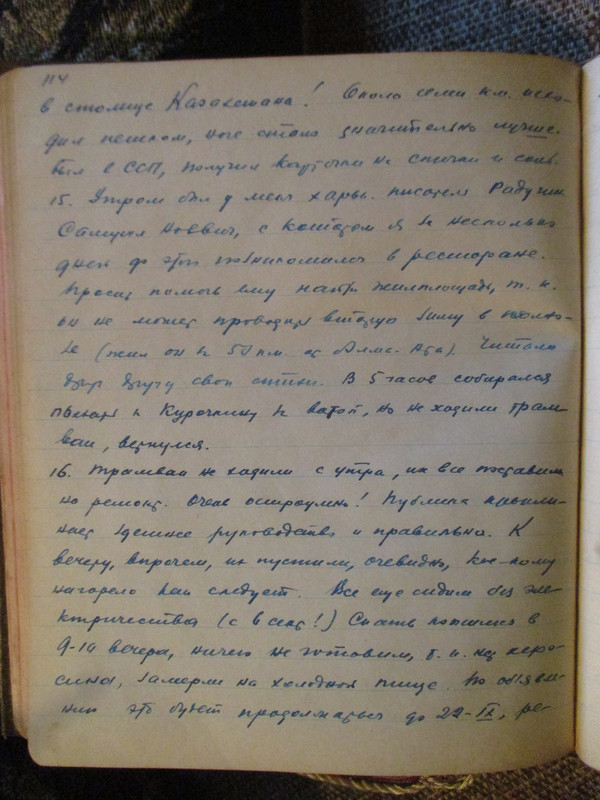 114
в столице Казахстана! Около семи км. исхо-
дил пешком, ноге стало значительно лучше.
Был в ССП, получил карточки на спички и соль.
15. Утром был у меня харьк. писатель Радугин
Самуил, с которым я за несколько
дней до этого познакомился в ресторане.
Просил помочь ему найти жилплощадь, т. к.
он не может проводить вторую зиму в колхо-
зе (жил он за 50 км. от Алма-Ата). Читали
друг другу свои стихи. В 5 часов собирался
поехать к Курочкину за ватой, но не ходили трам-
ваи, вернулся.
16. Трамваи не ходили с утра, их все поставили
на ремонт. Очень остроумно! Публика
здешнее руководство и правильно. К
вечеру, впрочем, их пустили, очевидно, кое-кому
нагорело как следует. Все еще сидим без эле-
ктричества (с 6 сент!) Спать ложимся в
9-10 вечера, ничего не готовим, т. к. нет керо-
сина, замерли на холодной пище. По объявле-
нию это будет продолжаться до 22-IX, ре-